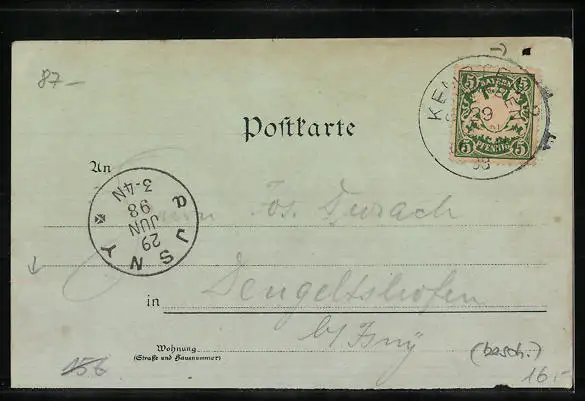 87-
KEMPTEN
29
98
5 5
BAYERN
5 PFENNIG 5
Postkarte
An
Jos. Durach
3-4N
98
JUN
29
in Dengeltshofen
b/ Isny
Wohnung
(Straße und Hausnummer)
(besch.)
156
16.-